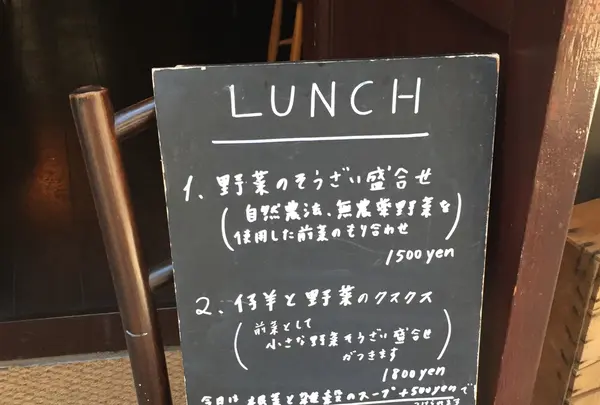 LUNCH
1、野菜のそうざい盛合せ
(自然農法、無農薬野菜を
使用した前菜のもり合わせ)
1500yen
2、仔羊と野菜のクスクス
(前菜として
小さな野菜そうざい盛合せ
がつきます)
1800yen
今日は 根菜と雑穀のスープ +500yenで